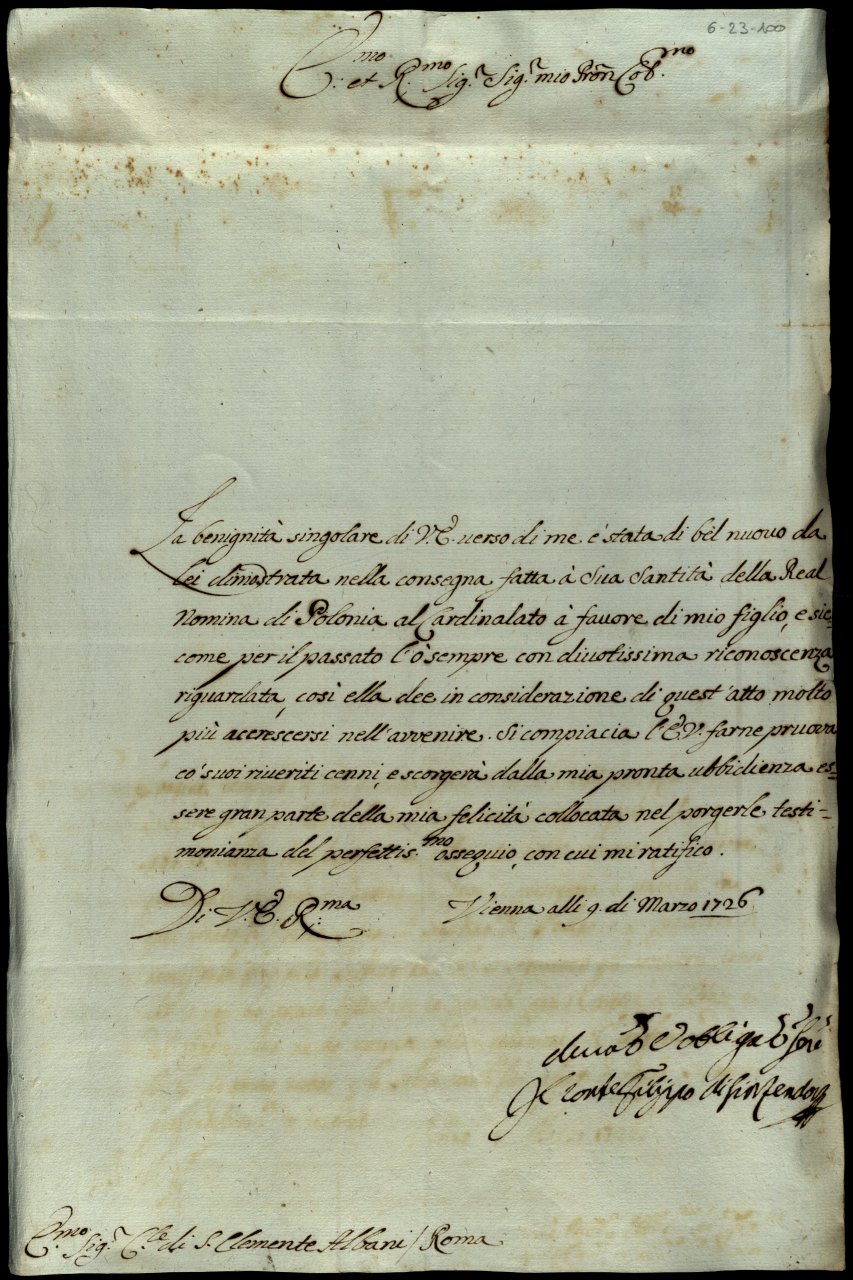 6-23-100
E.mo et R.mo Sig.r Sig.r mio Pron Col.mo
La benignità singolare di V.E. verso di me è stata di bel nuovo da
Lei dimostrata nella consegna fatta à Sua Santità della Real
Nomina di Polonia al Cardinalato à favore di mio figlio, e sic=
come per il passato l'ò sempre con divotissima riconoscenza
riguardata, così ella dee in considerazione di quest'atto molto
più accrescersi nell'avvenire. Si compiacia l'E.V. farne pruova
co' suoi riveriti cenni, e scorgerà dalla mia pronta ubbidienza es=
sere gran parte della mia felicità collocata nel porgerle testi=
monianza del perfettis.mo ossequio, con cui mi ratifico.
Di V.E. R.ma Vienna alli 9. di Marzo 1726
E obliga
Il Conte Filippo di Sinzendorf
E.mo Sig.r C.le di S. Clemente Albani / Roma